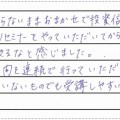 らないままおまかせで投資信
セミナーでやっていただいてから
るなと感じました。
回を連続で行っていただ
いないものでも受講しやすい